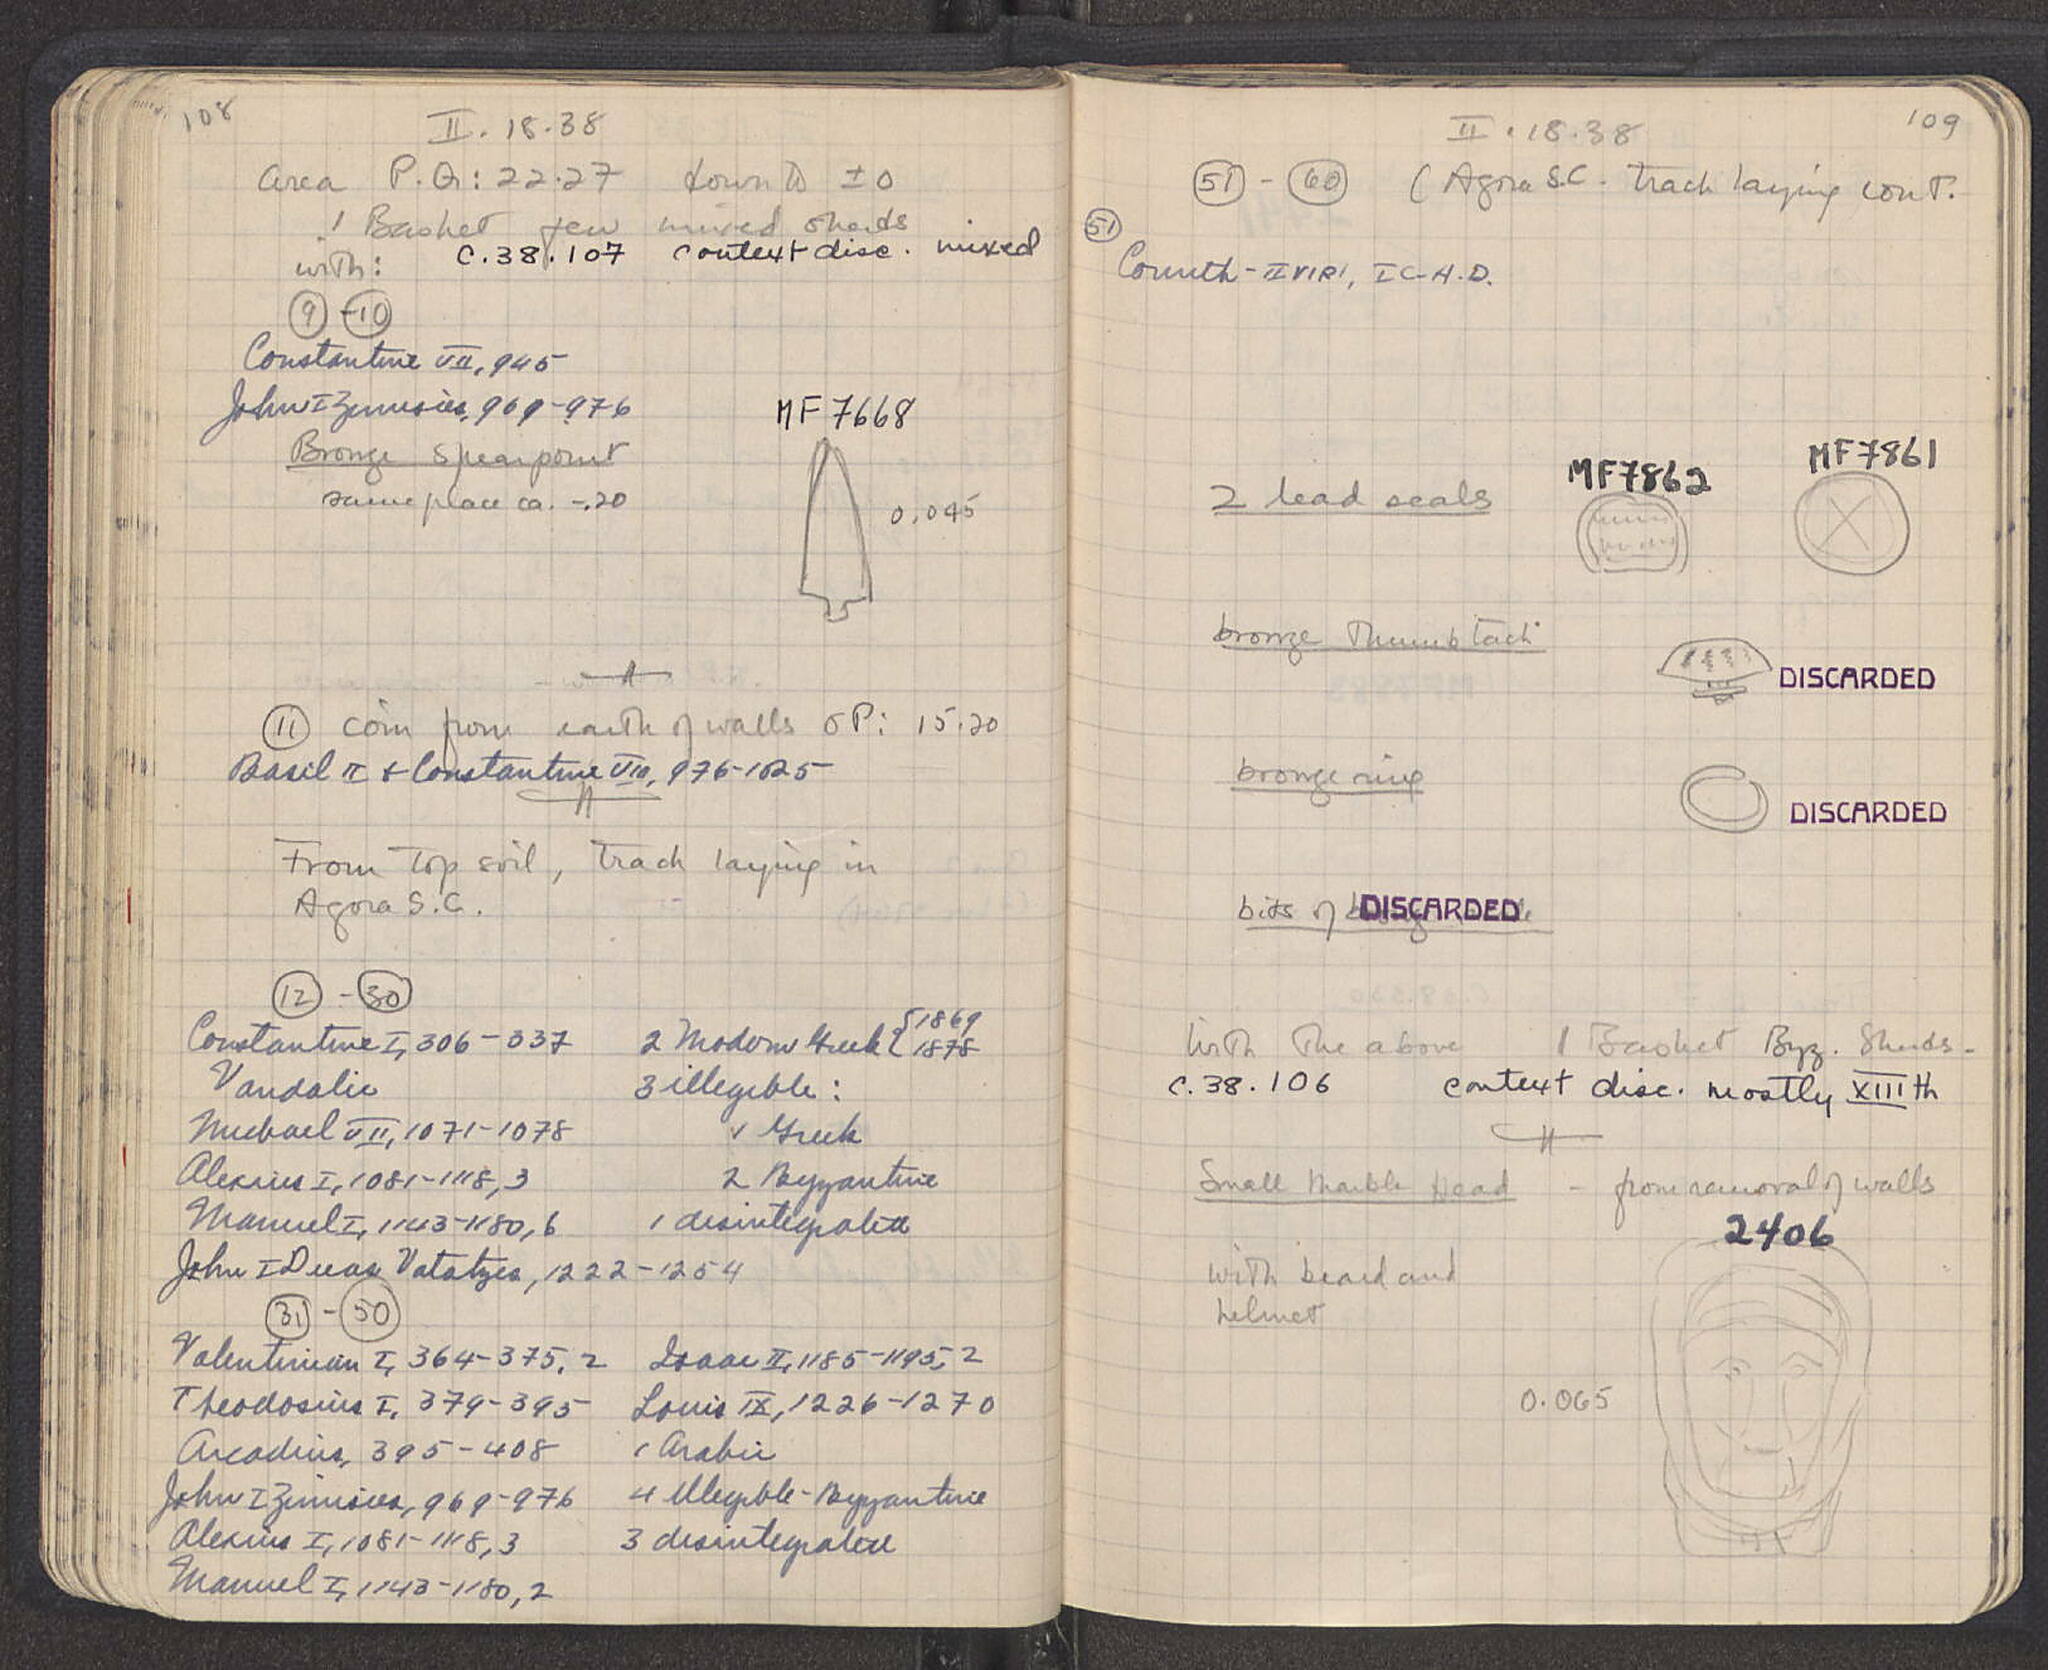 108
II. 18.38
Area P.Q: 22.27 down to ±0
1 Basket few mixed sherds
with: C.38.107 context disc. mixed
9 - 10
Constantine VII, 945
John I Zimisces, 969-976
MF 7668
Bronze spearpoint
same place ca. -.20
0.045
11 coin from earth of walls P: 15.20
Basil II & Constantine VIII, 976-1025
From top soil, track laying in
Agora S.C.
12 - 30
Constantine I, 306-337
Vandalic
Michael VII, 1071-1078
Alexius I, 1081-1118, 3
Manuel I, 1143-1180, 6
John I Ducas Vatatzes, 1222-1254
2 Modern Greek { 1869
1878
3 illegible:
1 Greek
2 Byzantine
1 disintegrated
31 - 50
Valentinian I, 364-375, 2
Theodosius I, 379-395
Arcadius, 395-408
John I Zimisces, 969-976
Alexius I, 1081-1118, 3
Manuel I, 1143-1180, 2
Isaac II, 1185-1195, 2
Louis IX, 1226-1270
1 Arabic
4 illegible-Byzantine
3 disintegrated
109
II. 18.38
51 - 60 (Agora S.C. track laying cont.
51
Corinth-IIVIRI, I C-A.D.
2 lead seals
MF7862
MF7861
bronze Thumbtack
DISCARDED
bronze ring
DISCARDED
bits of DISCARDED
With the above 1 Basket Byz. Sherds-
C.38.106 context disc. mostly XIIIth
Small Marble Head - from removal of walls
2406
with beard and
helmet
0.065